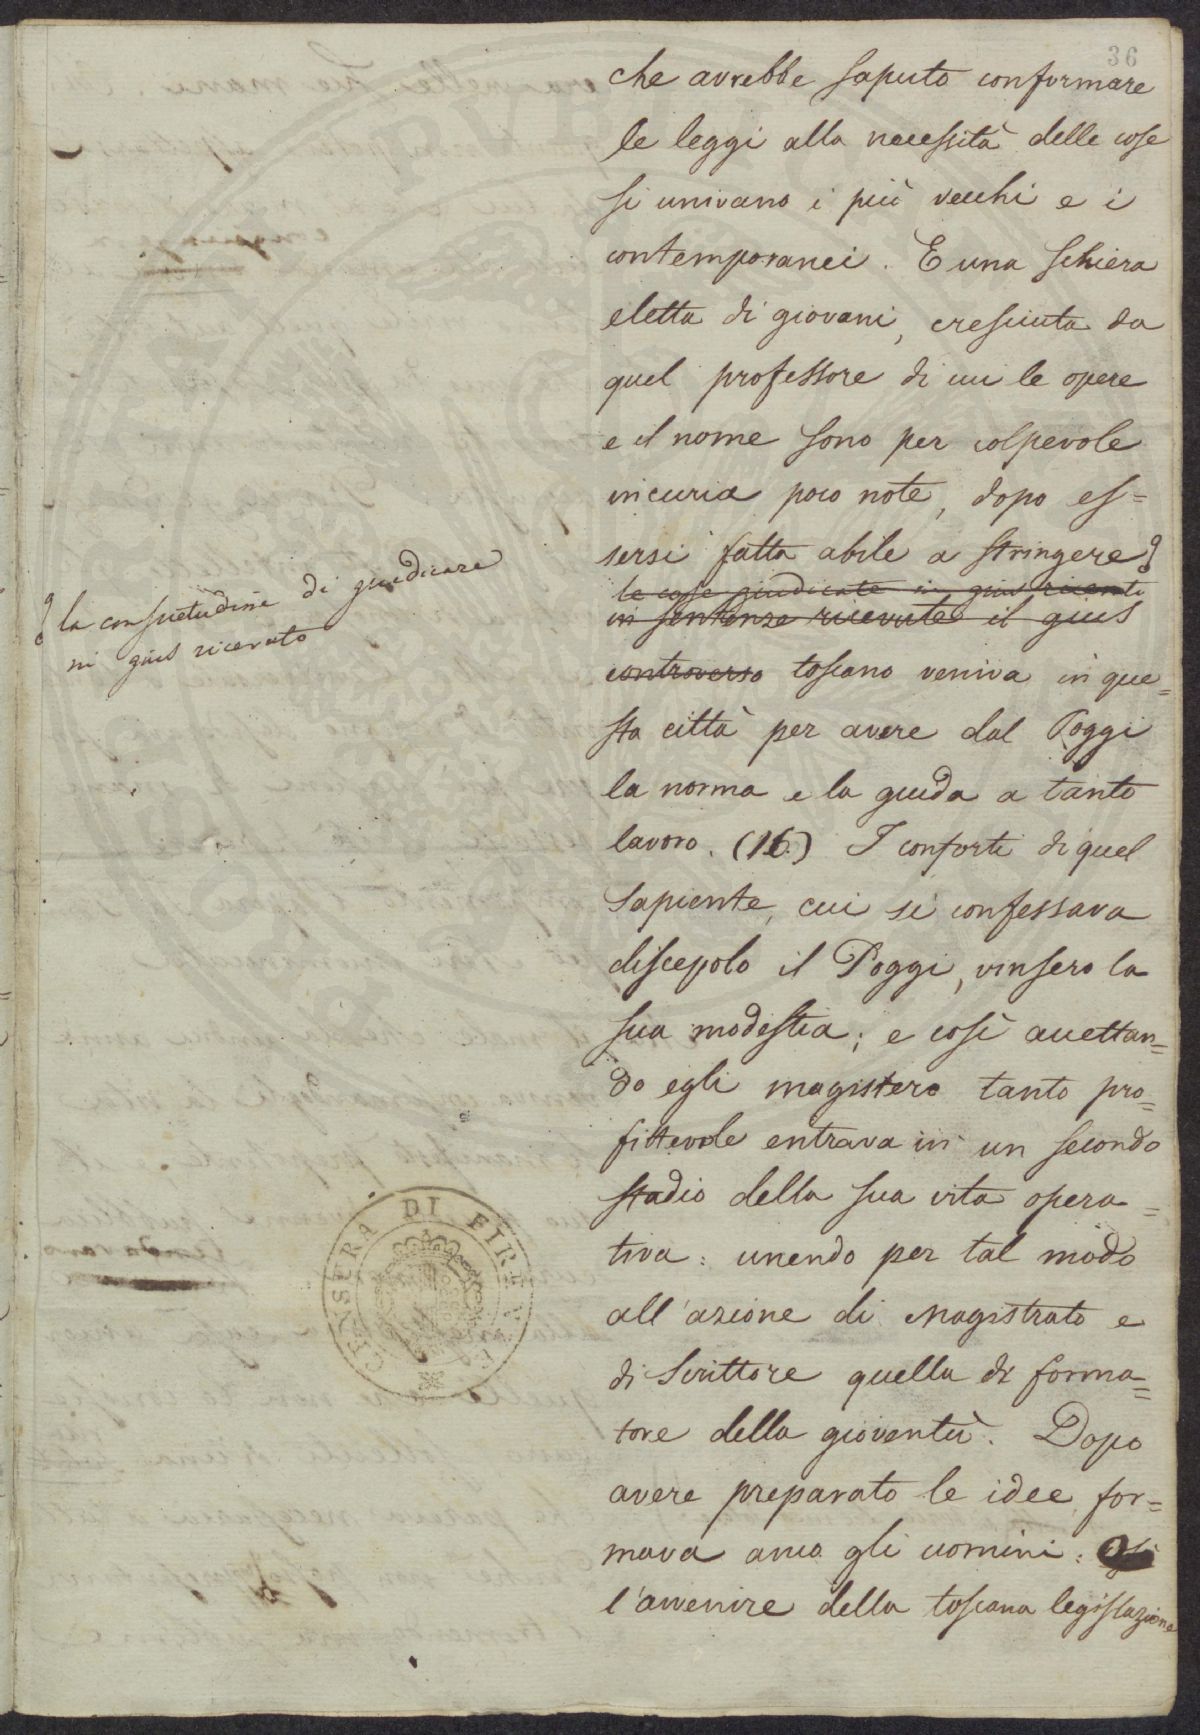 36
che avrebbe saputo conformare
le leggi alla necessità delle cose
si univano i più vecchi e i
contemporanei. E una schiera
eletta di giovani, cresciuta da
quel professore di cui le opere
e il nome sono per colpevole
incuria poco note, dopo es=
sersi fatta abile a stringere
la consuetudine di giudicare
in gius ricevuto
le cose giudicate in gius ricevuto
in sentenze ricevute il gius
controverso toscano veniva in que=
sta città per avere dal Poggi
la norma e la guida a tanto
lavoro. (16) I conforti di quel
sapiente, cui si confessava
discepolo il Poggi, vinsero la
sua modestia; e così accettan=
do egli magistero tanto pro=
fittevole entrava in un secondo
stadio della sua vita opera=
tiva: unendo per tal modo
all'azione di Magistrato e
di Scrittore quella di forma=
tore della gioventù. Dopo
avere preparato le idee for=
mava anco gli uomini:
l'avvenire della toscana legislazione
CENSURA DI FIRENZE